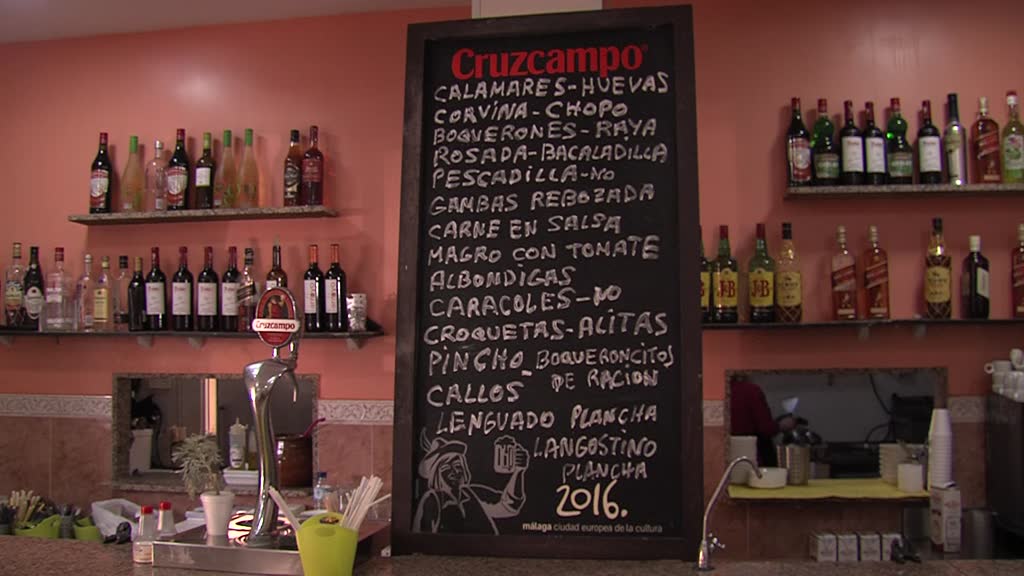 Cruzcampo
CALAMARES-HUEVAS
CORVINA-CHOPO
BOQUERONES-RAYA
ROSADA-BACALADILLA
PESCADILLA-NO
GAMBAS REBOZADA
CARNE EN SALSA
MAGRO CON TOMATE
ALBONDIGAS
CARACOLES-NO
CROQUETAS-ALITAS
PINCHO-BOQUERONCITOS
DE RACION
CALLOS
LENGUADO PLANCHA
LANGOSTINO
PLANCHA
2016.
málaga ciudad europea de la cultura
Cruzcampo
J&B
J&B